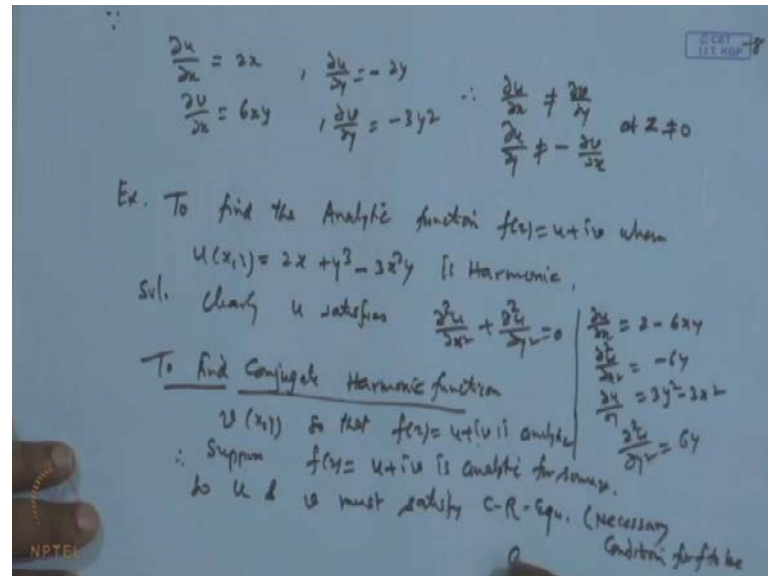 © CET
I.I.T. KGP
-8
∂u/∂x = 2x , ∂u/∂y = -2y ∴ ∂u/∂x ≠ ∂v/∂y
∂v/∂x = 6xy , ∂v/∂y = -3y2 ∂u/∂y ≠ - ∂v/∂x at Z ≠ 0
Ex. To find the Analytic function f(z) = u+iv where
u(x,y) = 2x + y³ - 3x²y is Harmonic.
Sol. Clearly u satisfies ∂²u/∂x² + ∂²u/∂y² = 0
∂u/∂x = 2 - 6xy
∂²u/∂x² = -6y
∂u/∂y = 3y² - 3x²
∂²u/∂y² = 6y
To find Conjugate Harmonic function
v(x,y) so that f(z) = u+iv is analytic
∴ Suppose f(z) = u+iv is analytic for some v.
So u & v must satisfy C-R-Equ. (Necessary
Condition for f to be
NPTEL